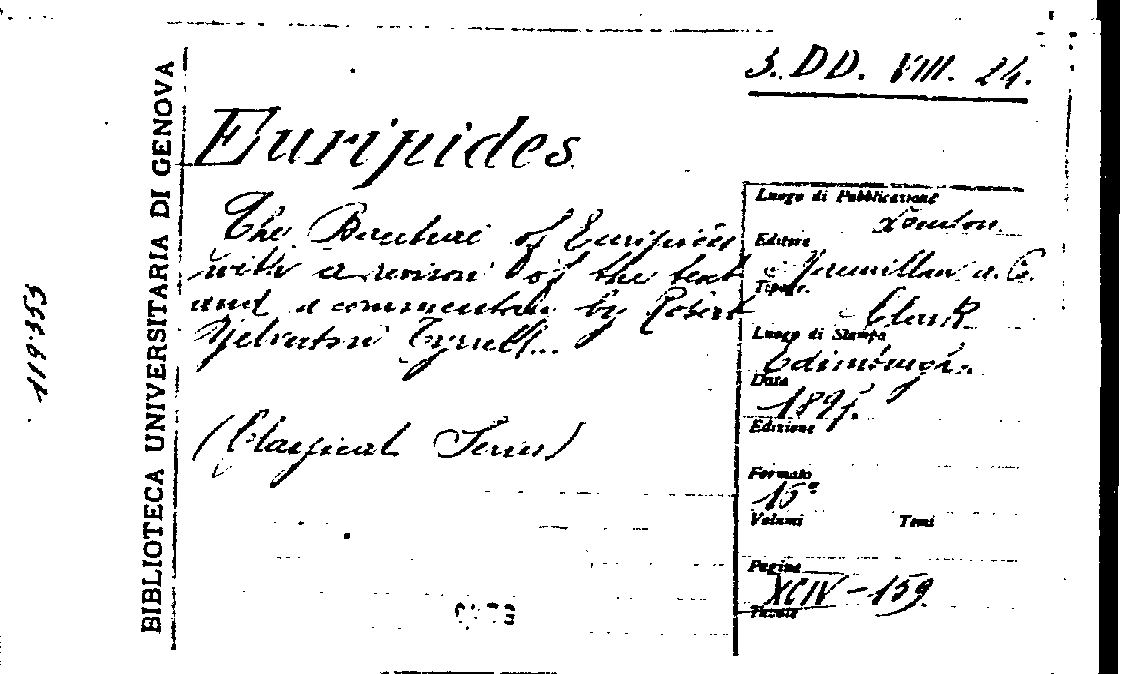 3. DD. VIII. 24.
BIBLIOTECA UNIVERSITARIA DI GENOVA
119353
Euripides
The Bacchae of Euripides
with a revision of the text
and a commentary by Robert
Yelverton Tyrrell...
(Classical Series)
Luogo di Pubblicazione
London
Editore
Macmillan a. C.
Tipogr.
Clark
Luogo di Stampa
Edimburgh.
Data
Edizione
Formato
15°
Volumi Tomi
Pagine
XCIV - 159
Tavole